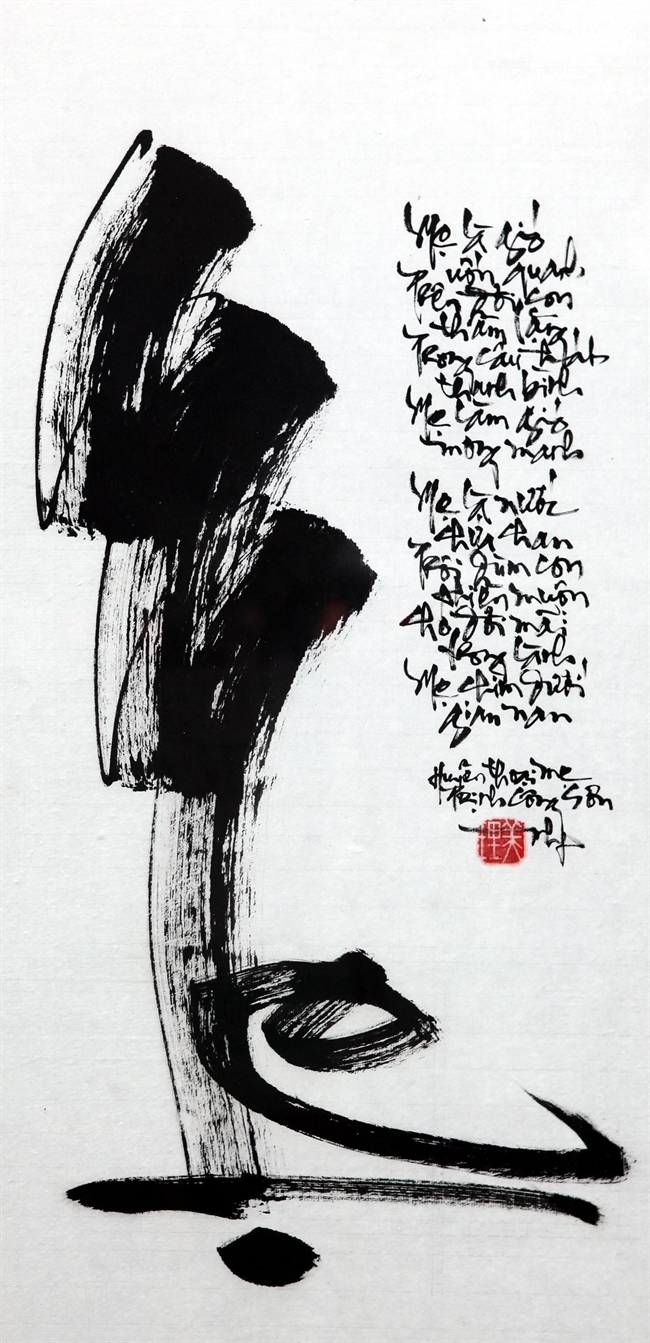 Mẹ
Mẹ là gió
uốn quanh
Trên đời con
thầm lặng
Trong câu hát
thanh bình
Mẹ làm gió
mong manh
Mẹ là nước
chứa chan
Trôi dùm con
phiền muộn
cho đời mãi
trong lành
Mẹ chìm dưới
gian nan
Huyền thoại mẹ
Trịnh Công Sơn